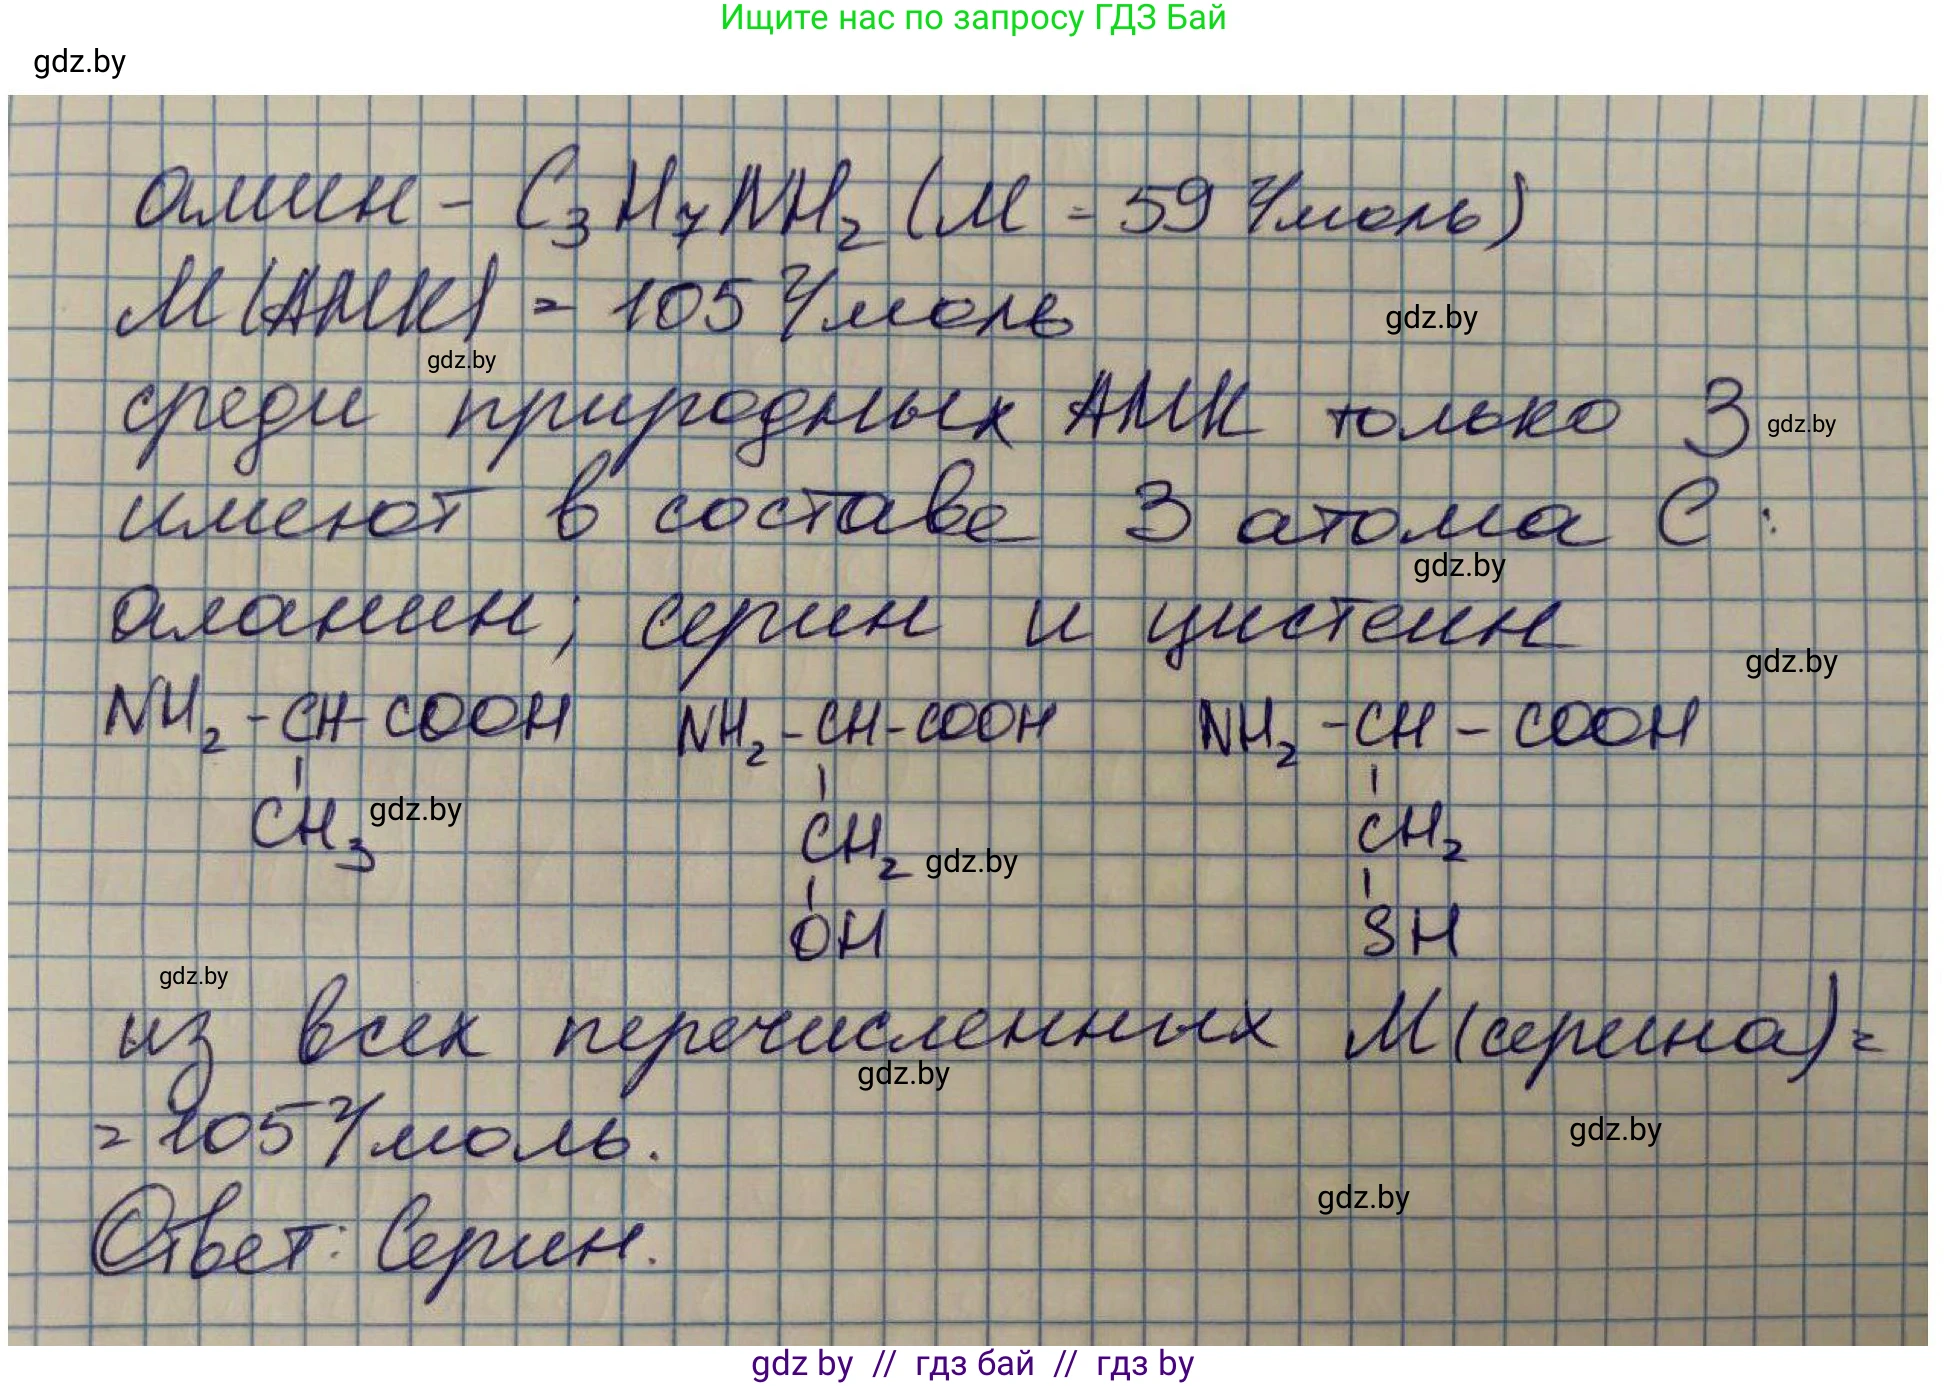 Ищите нас по запросу ГДЗ Бай
gdz.by
амин - C₃H₇NH₂ (M = 59 г/моль)
M(АМК) = 105 г/моль
gdz.by
gdz.by
среди природных АМК только 3
gdz.by
имеют в составе 3 атома C:
gdz.by
аланин; серин и цистеин
gdz.by
NH₂-CH-COOH NH₂-CH-COOH NH₂-CH-COOH
CH₃ CH₂ CH₂
gdz.by
gdz.by
OH SH
gdz.by
из всех перечисленных M(серина)=
gdz.by
= 105 г/моль.
gdz.by
gdz.by
Ответ: Серин.
gdz by // гдз бай // гдз by